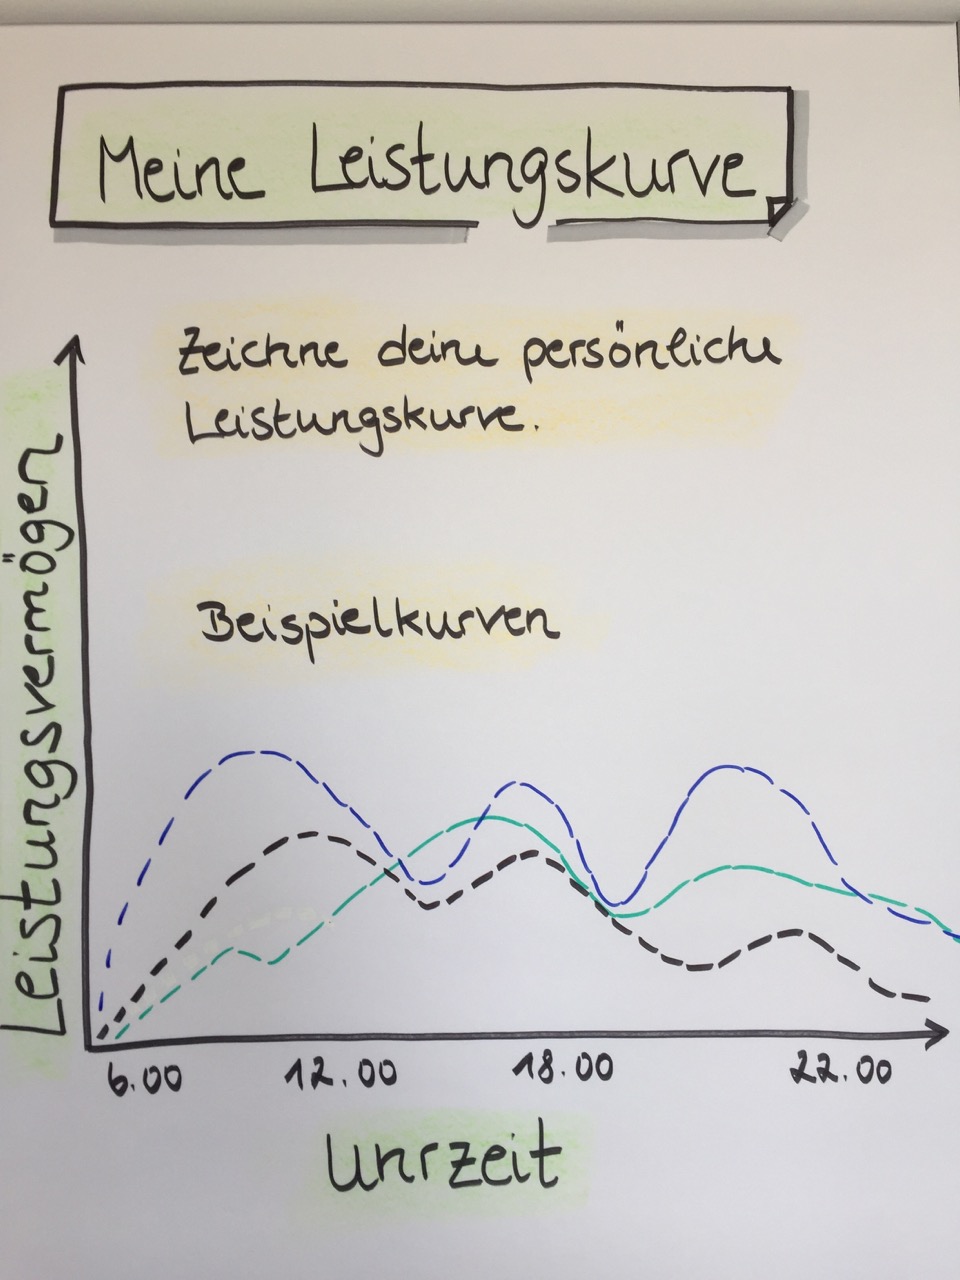 Meine Leistungskurve
Zeichne deine persönliche
Leistungskurve.
Beispielkurven
Leistungsvermögen
6.00 12.00 18.00 22.00
Uhrzeit